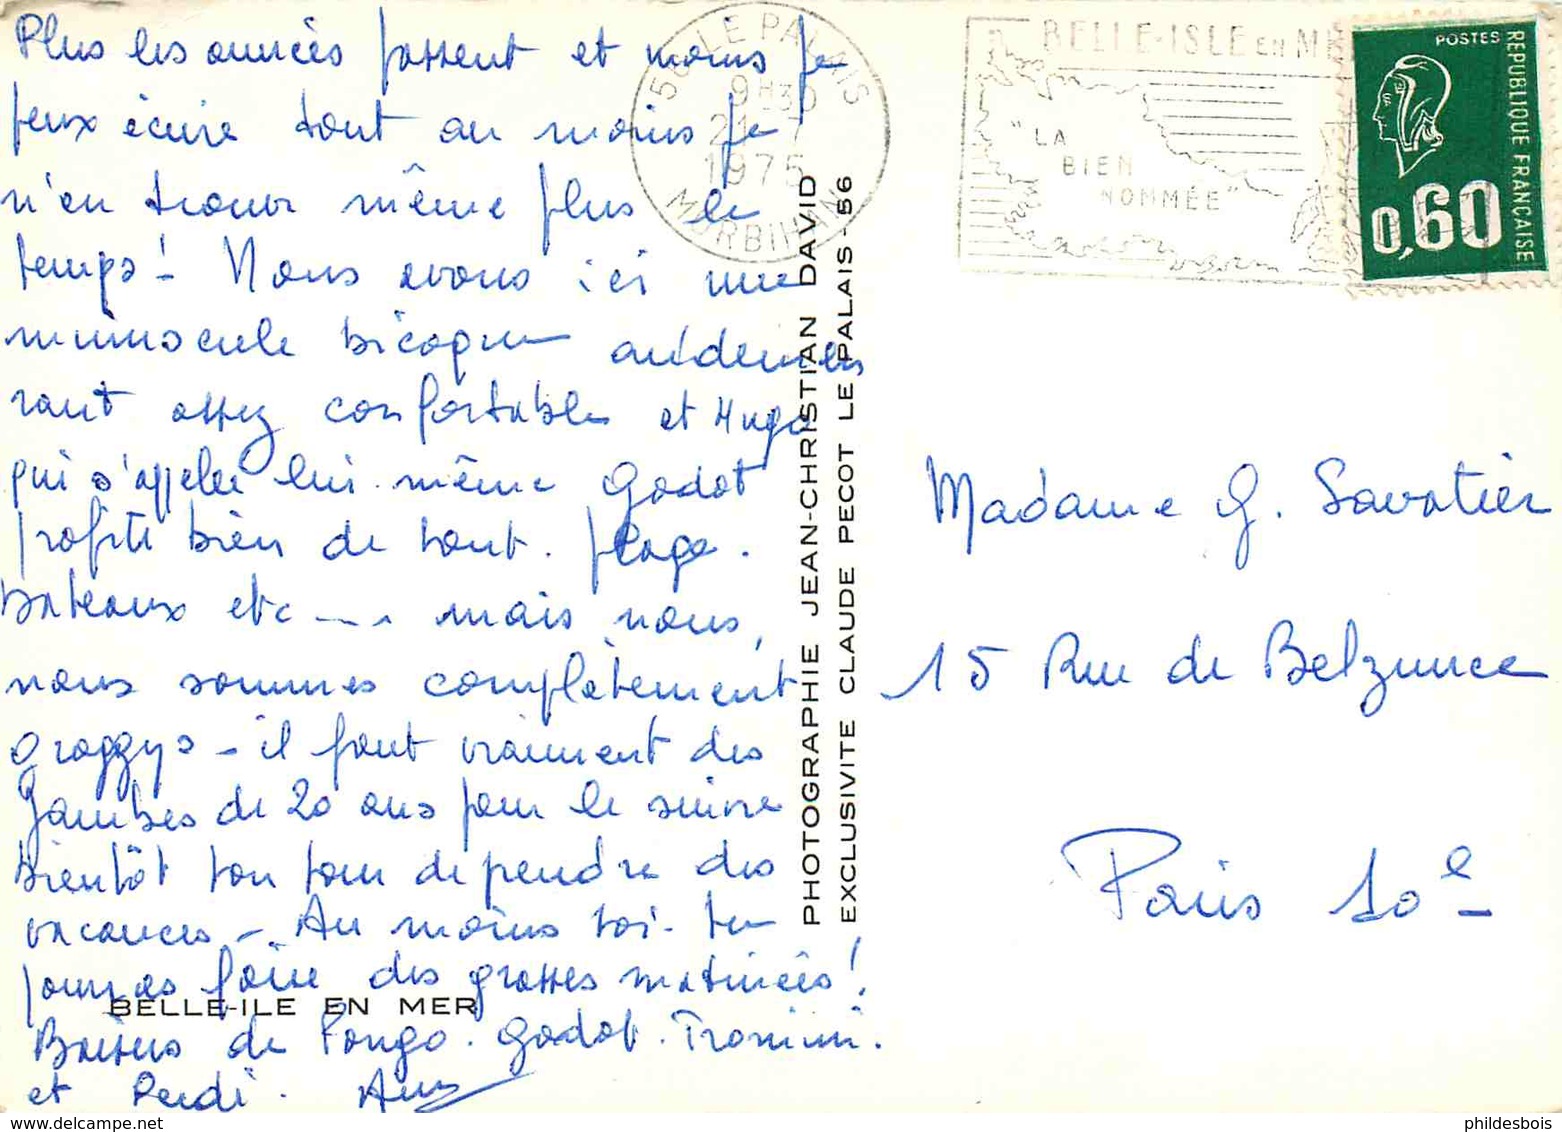 Plus les années passent et moins je
peux écrire tout au moins je
n'en trouve même plus le
temps! Nous avons ici une
minuscule bicoque au demeu
rant assez confortable et Hugo
qui s'appelle lui-même Godot
profite bien de tout. plage.
bateaux etc ---. mais nous,
nous sommes complètement
groggys - il faut vraiment des
jambes de 20 ans pour le suivre
Bientôt ton tour de prendre des
vacances - Au moins toi. tu
pourras faire des grasses matinées!
Baisers de Godot.
et
BELLE-ILE EN MER
PHOTOGRAPHIE JEAN-CHRISTIAN DAVID
EXCLUSIVITE CLAUDE PECOT LE PALAIS-56
56 LE PALAIS
9H30
21-7
1975
MORBIHAN
BELLE-ISLE EN M
"LA
BIEN
NOMMÉE"
POSTES
REPUBLIQUE FRANÇAISE
0,60
Madame G. Savatier
15 Rue de Belzunce
Paris 10e
phildesbois